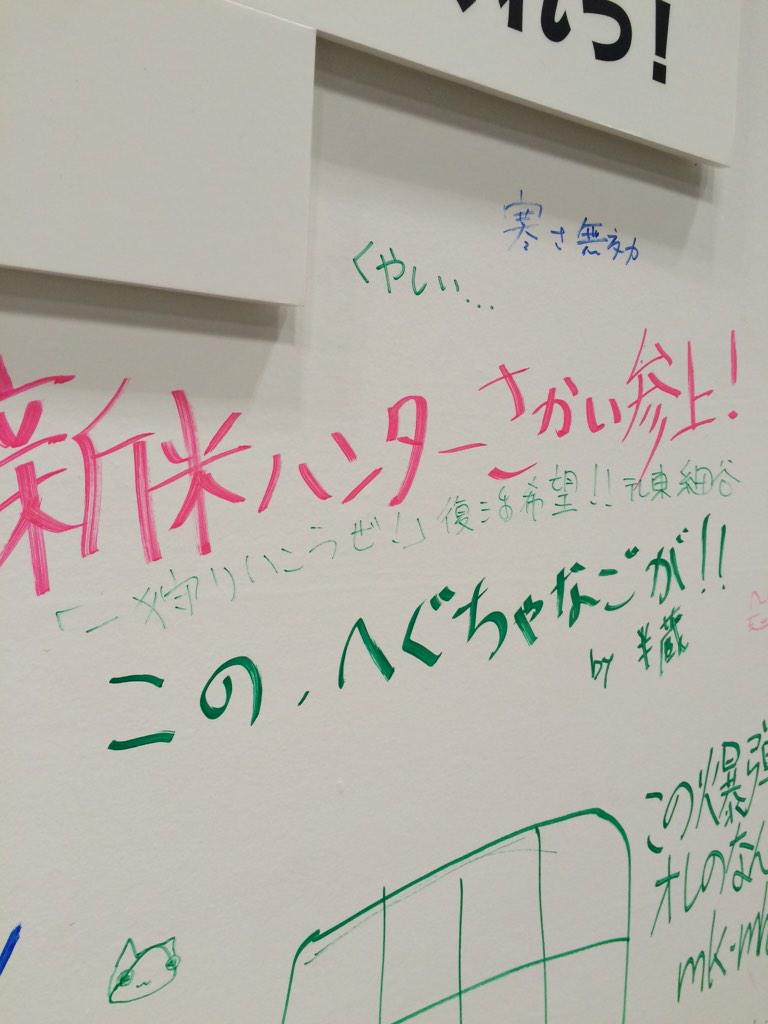 れつ!
寒さ無効
くやしい…
新米ハンターさかい参上!
「一狩りいこうぜ!」復活希望!! 札東細谷
この、へぐちゃなごが!!
by 半蔵
この爆弾
オレのなん
mk-mk